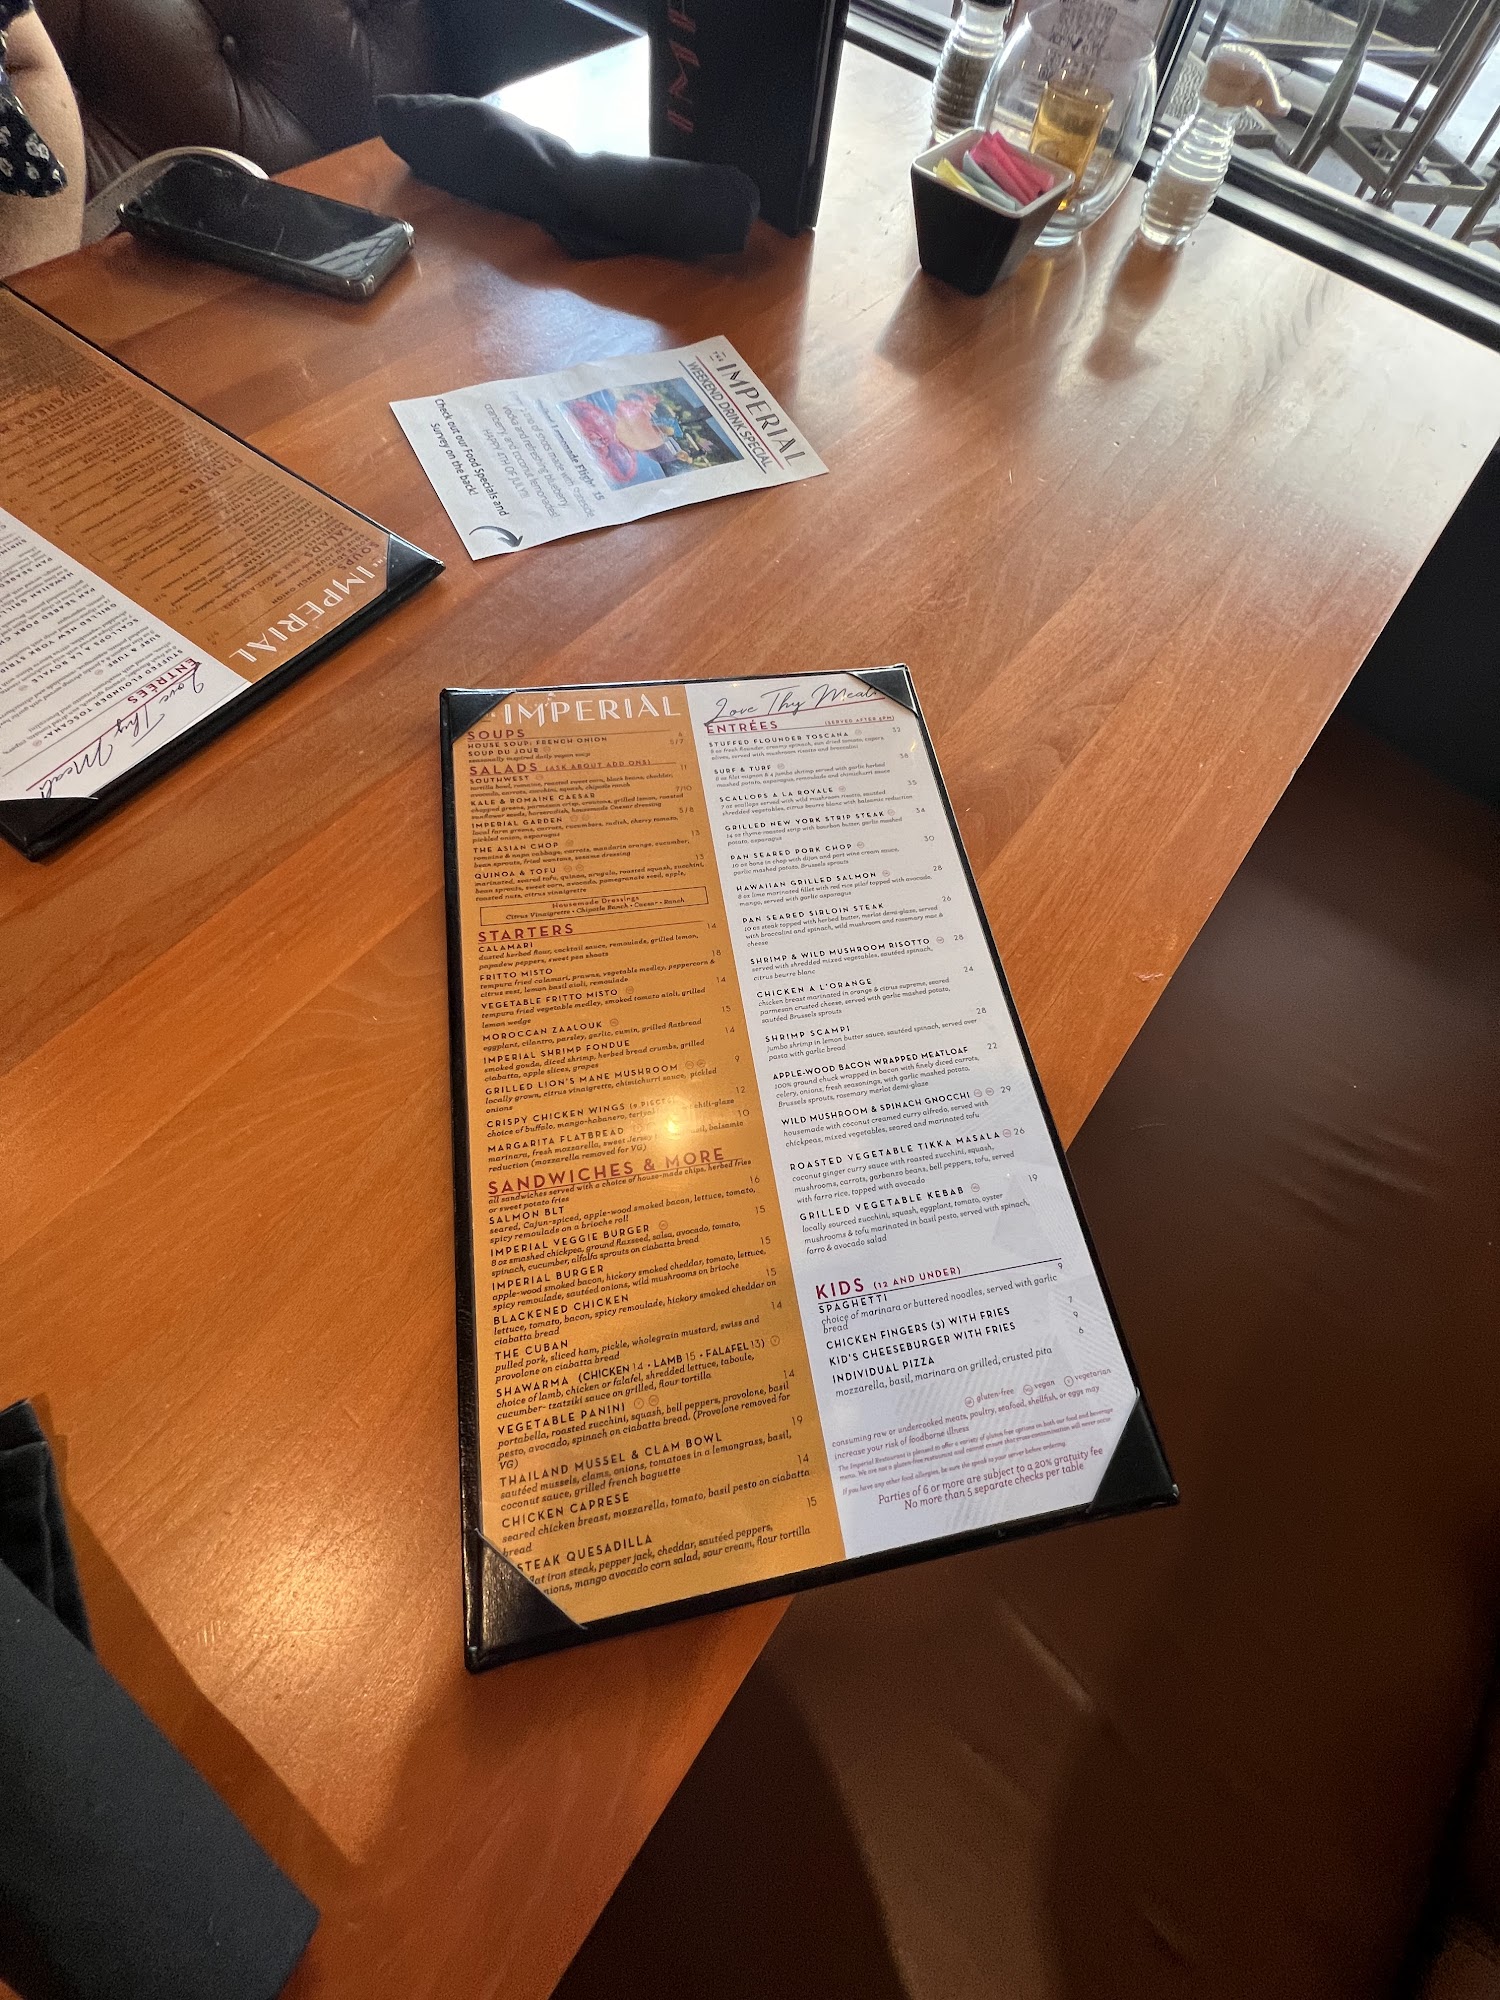 IMPERIAL
SOUPS
HOUSE SOUP: FRENCH ONION 6
SOUP DU JOUR 5/7
seasonally inspired daily vegan soup
SALADS (ASK ABOUT ADD ONS)
SOUTHWEST 11
tortilla bowl, romaine, roasted sweet corn, black beans, cheddar,
avocado, carrots, zucchini, squash, chipotle ranch
KALE & ROMAINE CAESAR 7/10
chopped greens, parmesan crisp, croutons, grilled lemon, roasted
sunflower seeds, horseradish, housemade Caesar dressing
IMPERIAL GARDEN 5/8
local farm greens, carrots, cucumbers, radish, cherry tomato,
pickled onion, asparagus
THE ASIAN CHOP 13
romaine & napa cabbage, carrots, mandarin orange, cucumber,
bean sprouts, fried wontons, sesame dressing
QUINOA & TOFU 13
marinated, seared tofu, quinoa, arugula, roasted squash, zucchini,
bean sprouts, sweet corn, avocado, pomegranate seed, apple,
toasted nuts, citrus vinaigrette
Housemade Dressings
Citrus Vinaigrette • Chipotle Ranch • Caesar • Ranch
STARTERS
CALAMARI 14
dusted herbed flour, cocktail sauce, remoulade, grilled lemon,
papadew peppers, sweet pea shoots
FRITTO MISTO 18
tempura fried calamari, prawns, vegetable medley, peppercorn &
citrus zest, lemon basil aioli, remoulade
VEGETABLE FRITTO MISTO 14
tempura fried vegetable medley, smoked tomato aioli, grilled
lemon wedge
MOROCCAN ZAALOUK 15
eggplant, cilantro, parsley, garlic, cumin, grilled flatbread
IMPERIAL SHRIMP FONDUE 14
smoked gouda, diced shrimp, herbed bread crumbs, grilled
ciabatta, apple slices, grapes
GRILLED LION'S MANE MUSHROOM 9
locally grown, citrus vinaigrette, chimichurri sauce, pickled
onions
CRISPY CHICKEN WINGS (9 PIECES) 12
choice of buffalo, mango-habanero, chili-glaze
MARGARITA FLATBREAD 10
marinara, fresh mozzarella, sweet Jersey basil, balsamic
reduction (mozzarella removed for VG)
SANDWICHES & MORE
all sandwiches served with a choice of house-made chips, herbed fries
or sweet potato fries
SALMON BLT 16
seared, Cajun-spiced, apple-wood smoked bacon, lettuce, tomato,
spicy remoulade on a brioche roll
IMPERIAL VEGGIE BURGER 15
8 oz smashed chickpea, ground flaxseed, salsa, avocado, tomato,
spinach, cucumber, alfalfa sprouts on ciabatta bread
IMPERIAL BURGER 15
apple-wood smoked bacon, hickory smoked cheddar, tomato, lettuce,
spicy remoulade, sautéed onions, wild mushrooms on brioche
BLACKENED CHICKEN 15
lettuce, tomato, bacon, spicy remoulade, hickory smoked cheddar on
ciabatta bread
THE CUBAN 14
pulled pork, sliced ham, pickle, wholegrain mustard, swiss and
provolone on ciabatta bread
SHAWARMA (CHICKEN 14 • LAMB 15 • FALAFEL 13) V
choice of lamb, chicken or falafel, shredded lettuce, taboule,
cucumber- tzatziki sauce on grilled, flour tortilla
VEGETABLE PANINI 14
portabella, roasted zucchini, squash, bell peppers, provolone, basil
pesto, avocado, spinach on ciabatta bread. (Provolone removed for
VG)
THAILAND MUSSEL & CLAM BOWL 19
sautéed mussels, clams, onions, tomatoes in a lemongrass, basil,
coconut sauce, grilled french baguette
CHICKEN CAPRESE 14
seared chicken breast, mozzarella, tomato, basil pesto on ciabatta
bread
STEAK QUESADILLA 15
flat iron steak, pepper jack, cheddar, sautéed peppers,
onions, mango avocado corn salad, sour cream, flour tortilla
Love Thy Meal
ENTRÉES (SERVED AFTER 5PM)
STUFFED FLOUNDER TOSCANA 32
8 oz fresh flounder, creamy spinach, sun dried tomato, capers,
olives, served with mushroom risotto and broccolini
SURF & TURF 38
6 oz filet mignon & 4 jumbo shrimp served with garlic herbed
mashed potato, asparagus, remoulade and chimichurri sauce
SCALLOPS A LA ROYALE 35
7 oz scallops served with wild mushroom risotto, sautéed
shredded vegetables, citrus beurre blanc with balsamic reduction
GRILLED NEW YORK STRIP STEAK 34
14 oz thyme roasted strip with bourbon butter, garlic mashed
potato, asparagus
PAN SEARED PORK CHOP 30
10 oz bone in chop with dijon and port wine cream sauce,
garlic mashed potato, Brussels sprouts
HAWAIIAN GRILLED SALMON 28
8 oz lime marinated fillet with red rice pilaf topped with avocado,
mango, served with garlic asparagus
PAN SEARED SIRLOIN STEAK 26
10 oz steak topped with herbed butter, merlot demi-glaze, served
with broccolini and spinach, wild mushroom and rosemary mac &
cheese
SHRIMP & WILD MUSHROOM RISOTTO 28
served with shredded mixed vegetables, sautéed spinach,
citrus beurre blanc
CHICKEN A L'ORANGE 24
chicken breast marinated in orange & citrus supreme, seared
parmesan crusted cheese, served with garlic mashed potato,
sautéed Brussels sprouts
SHRIMP SCAMPI 28
Jumbo shrimp in lemon butter sauce, sautéed spinach, served over
pasta with garlic bread
APPLE-WOOD BACON WRAPPED MEATLOAF 22
100% ground chuck wrapped in bacon with finely diced carrots,
celery, onions, fresh seasonings, with garlic mashed potato,
Brussels sprouts, rosemary merlot demi-glaze
WILD MUSHROOM & SPINACH GNOCCHI 29
housemade with coconut creamed curry alfredo, served with
chickpeas, mixed vegetables, seared and marinated tofu
ROASTED VEGETABLE TIKKA MASALA 26
coconut ginger curry sauce with roasted zucchini, squash,
mushrooms, carrots, garbanzo beans, bell peppers, tofu, served
with farro rice, topped with avocado
GRILLED VEGETABLE KEBAB 19
locally sourced zucchini, squash, eggplant, tomato, oyster
mushrooms & tofu marinated in basil pesto, served with spinach,
farro & avocado salad
KIDS (12 AND UNDER)
SPAGHETTI 9
choice of marinara or buttered noodles, served with garlic
bread
CHICKEN FINGERS (3) WITH FRIES 7
KID'S CHEESEBURGER WITH FRIES 9
INDIVIDUAL PIZZA 6
mozzarella, basil, marinara on grilled, crusted pita
gluten-free vegan vegetarian
consuming raw or undercooked meats, poultry, seafood, shellfish, or eggs may
increase your risk of foodborne illness
The Imperial Restaurant is pleased to offer a variety of gluten free options on both our food and beverage
menu. We are not a gluten-free restaurant and cannot ensure that cross-contamination will never occur
If you have any other food allergies, be sure the speak to your server before ordering.
Parties of 6 or more are subject to a 20% gratuity fee
No more than 5 separate checks per table
THE IMPERIAL
WEEKEND DRINK SPECIAL
Lemonade Flight 15
trio of shots made with
vodka and refreshing blueberry,
cranberry, and coconut lemonades!
HAPPY 4TH OF JULY!!
Check out our Food Specials and
Survey on the back!
THE IMPERIAL
SOUPS
SALADS
STARTERS
Love Thy Meal
ENTRÉES
STUFFED FLOUNDER TOSCANA
SURF & TURF
SCALLOPS A LA ROYALE